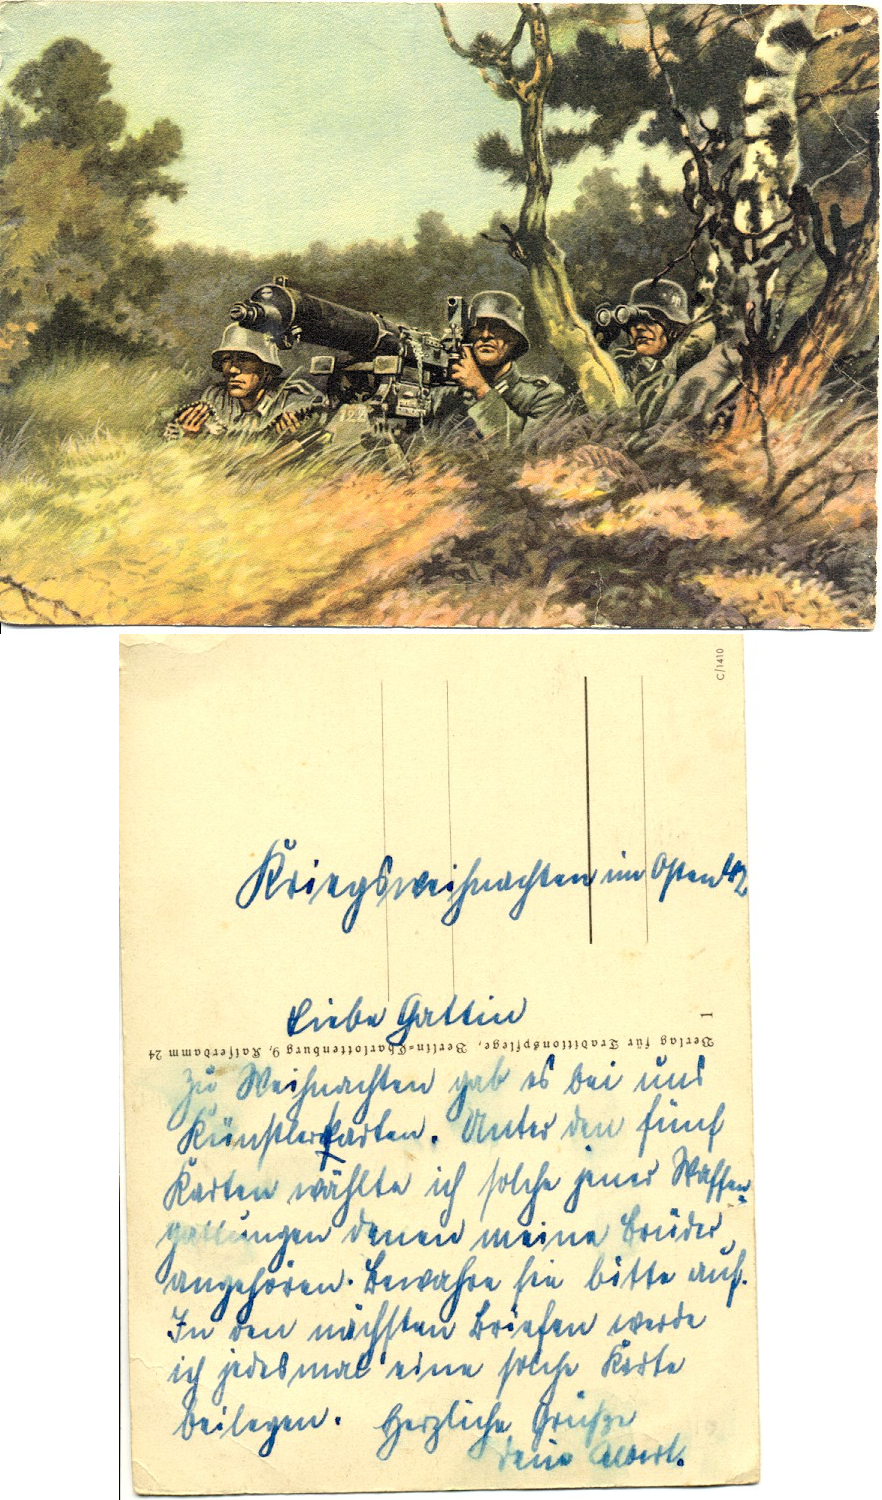 122
C/1410
Kriegsweihnachten im Osten 42
Liebe Gattin
1
Verlag für Traditionspflege, Berlin-Charlottenburg 9, Kaiserdamm 24
Zu Weihnachten gab es bei uns
Künstlerkarten. Unter den fünf
Karten wählte ich solche jener Waffen=
gattungen denen meine Brüder
angehören. Bewahre sie bitte auf.
In den nächsten Briefen werde
ich jedesmal eine solche Karte
beilegen. Herzliche Grüße
Dein Albert.